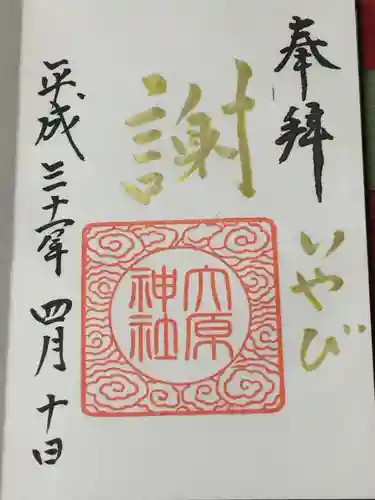 奉拝
いやび
謝
六原
神社
平成三十一年 四月 十日